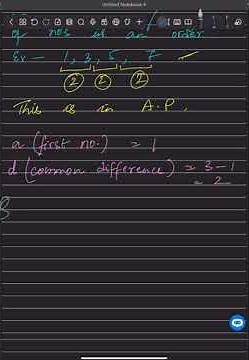 Untitled Notebook 4
of nos is an order
Ex - 1, 3, 5, 7
2 2 2
This is in A.P.
a (first no.) = 1
d (common difference) = 3 - 1
= 2